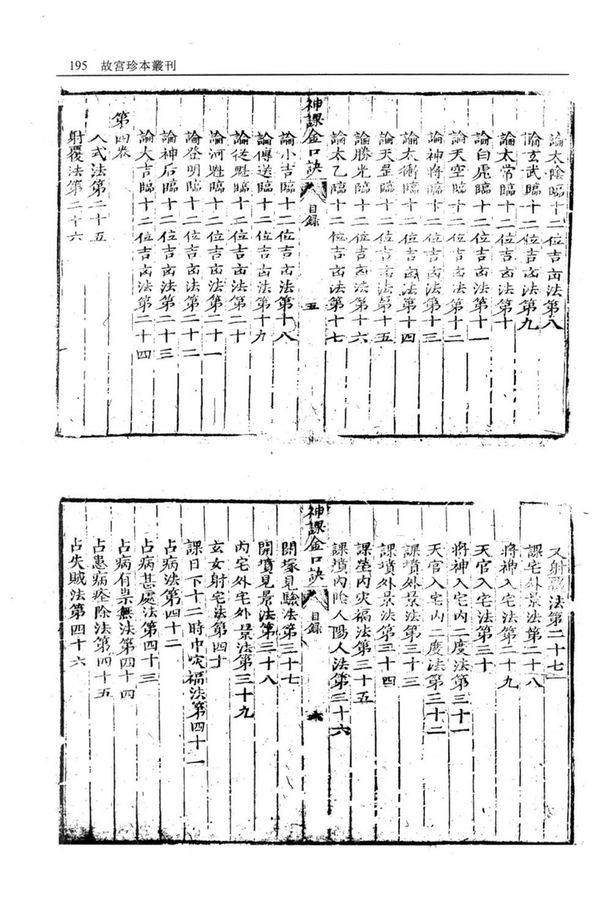 195 故宮珍本叢刊
論太陰臨十二位吉凶法第八
論玄武臨十二位吉凶法第九
論太常臨十二位吉凶法第十
論白虎臨十二位吉凶法第十一
論天空臨十二位吉凶法第十二
論神將臨十二位吉凶法第十三
論太衝臨十二位吉凶法第十四
論天罡臨十二位吉凶法第十五
論勝光臨十二位吉凶法第十六
論太乙臨十二位吉凶法第十七
神課金口訣 目錄 五
論小吉臨十二位吉凶法第十八
論傳送臨十二位吉凶法第十九
論從魁臨十二位吉凶法第二十
論河魁臨十二位吉凶法第二十一
論登明臨十二位吉凶法第二十二
論神后臨十二位吉凶法第二十三
論大吉臨十二位吉凶法第二十四
第四卷
入式法第二十五
射覆法第二十六
又射覆法第二十七
課宅外景法第二十八
將神入宅法第二十九
天官入宅法第三十
將神入宅內二度法第三十一
天官入宅內二度法第三十二
課墳外景法第三十三
課墳外景法第三十四
課塋內災福法第三十五
課墳內陰人陽人法第三十六
神課金口訣 目錄 六
開塚見驗法第三十七
開墳見景法第三十八
內宅外宅外景法第三十九
玄女射宅法第四十
課日下十二時中災福法第四十一
占病法第四十二
占病甚處法第四十三
占病有祟無法第四十四
占患病痊除法第四十五
占失賊法第四十六